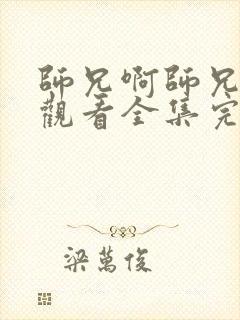 師兄啊師兄
觀看全集完
梁萬俊